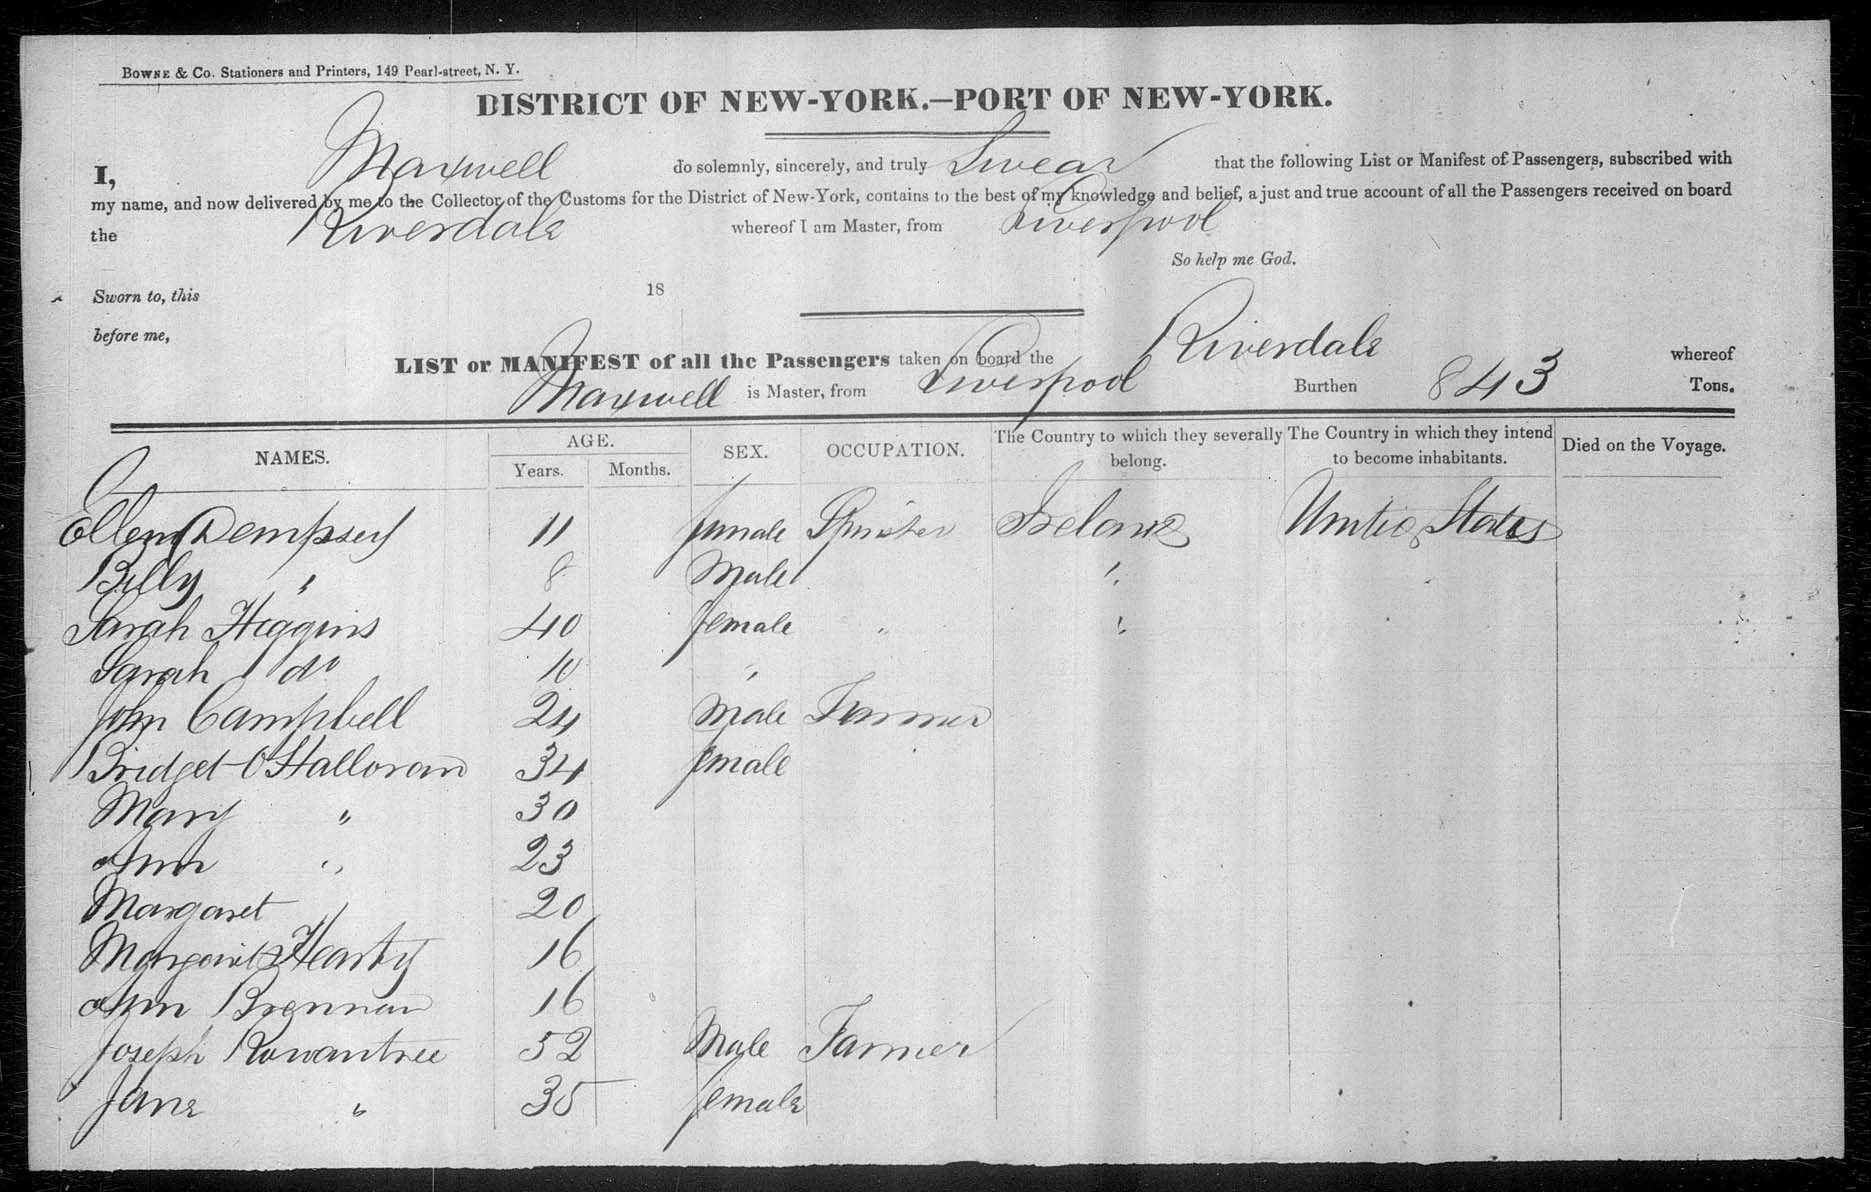 BOWNE & Co. Stationers and Printers, 149 Pearl-street, N. Y.
DISTRICT OF NEW-YORK.—PORT OF NEW-YORK.
I, Maxwell do solemnly, sincerely, and truly Swear that the following List or Manifest of Passengers, subscribed with
my name, and now delivered by me to the Collector of the Customs for the District of New-York, contains to the best of my knowledge and belief, a just and true account of all the Passengers received on board
the Riverdale whereof I am Master, from Liverpool
So help me God.
Sworn to, this 18
before me,
LIST or MANIFEST of all the Passengers taken on board the Riverdale whereof
Maxwell is Master, from Liverpool Burthen 843 Tons.
NAMES. AGE. Years. Months. SEX. OCCUPATION. The Country to which they severally belong. The Country in which they intend to become inhabitants. Died on the Voyage.
Ellen Dempsey 11 female Spinster Ireland United States
Billy " 8 Male "
Sarah Higgins 40 female " "
Sarah do 10 "
John Campbell 24 Male Farmer
Bridget O'Halloran 34 female
Mary " 30
Ann " 23
Margaret " 20
Margaret Hearty 16
Ann Brennan 16
Joseph Rowantree 52 Male Farmer
Jane " 35 female